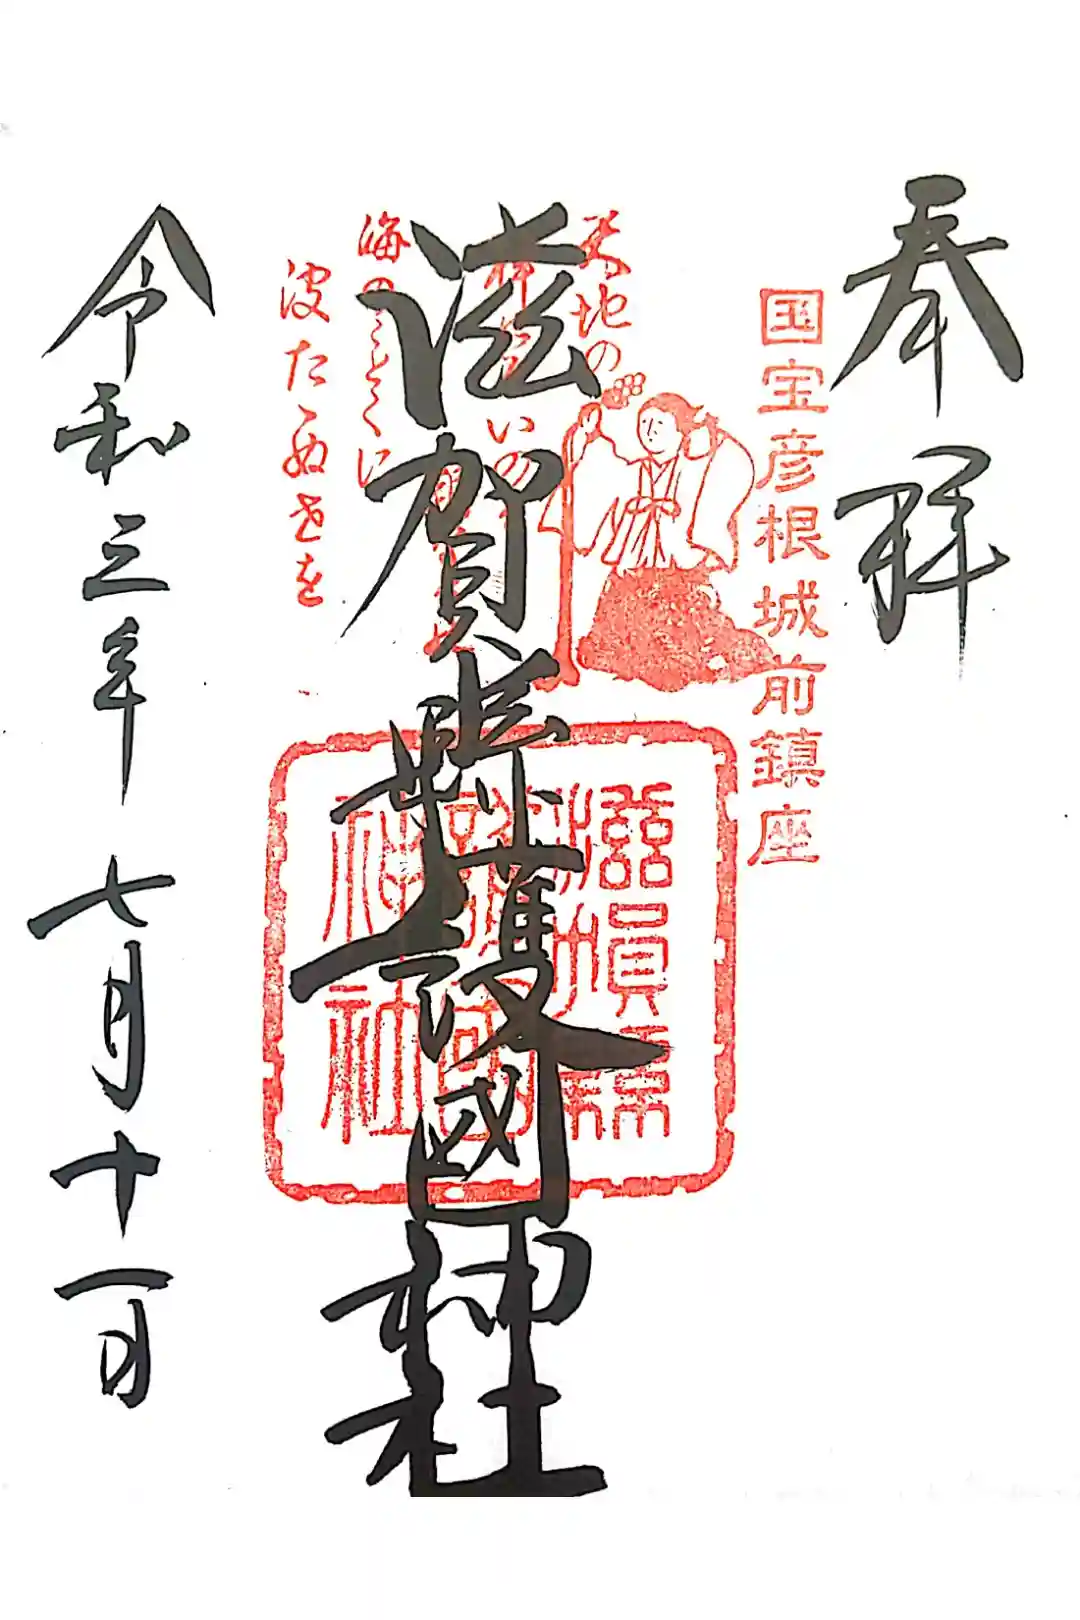 奉拝
国宝彦根城前鎮座
天地の
海のことくに
波たゝぬ世を
滋賀縣護國神社
滋賀縣
護國
神社
令和三年七月十一日